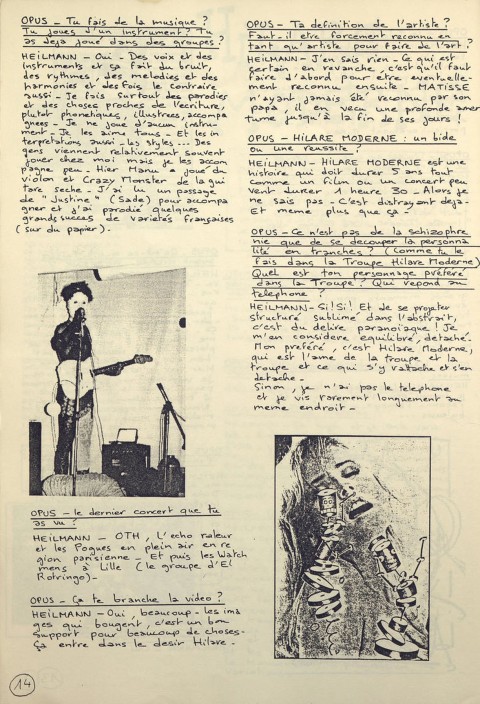 OPUS - Tu fais de la musique ?
Tu joues d'un instrument ? Tu
as deja joué dans des groupes ?
HEILMANN - Oui - Des voix et des
instruments et ça fait du bruit,
des rythmes, des melodies et des
harmonies et des fois, le contraire
aussi - Je fais surtout des parodies
et des choses proches de l'ecriture,
plutot phonetiques, illustrees, accompa
gnees - Je ne joue d'aucun instru-
ment - Je les aime tous - Et les in
terpretations aussi - les styles... Des
gens viennent relativement souvent
jouer chez moi mais je les accom
pagne peu - Hier Manu a joué du
violon et Crazy Monster de la gui
tare seche - J'ai lu un passage
de "Justine" (Sade) pour accompa
gner et j'ai parodié quelques
grands succes de varietés françaises
(sur du papier) -
OPUS - le dernier concert que tu
as vu ?
HEILMANN - OTH, L'echo raleur
et les Pogues en plein air en re
gion parisienne - Et puis les Watch
mens à Lille (le groupe d'El
Rotringo) -
OPUS - Ça te branche la video ?
HEILMANN - Oui beaucoup - les ima
ges qui bougent, c'est un bon
support pour beaucoup de choses -
Ça entre dans le desir Hilare -
14
OPUS - Ta definition de l'artiste ?
Faut-il etre forcement reconnu en
tant qu'artiste pour faire de l'art ?
HEILMANN - J'en sais rien - Ce qui est
certain en revanche, c'est qu'il faut
faire d'abord pour etre eventuelle-
ment reconnu ensuite - MATISSE
n'ayant jamais été reconnu par son
papa, il en vecu une profonde amer
tume jusqu'à la fin de ses jours !
OPUS - HILARE MODERNE : un bide
ou une reussite ?
HEILMANN - HILARE MODERNE est une
histoire qui doit durer 5 ans tout
comme un film ou un concert peu
vent durer 1 heure 30 - Alors je
ne sais pas - C'est distrayant deja -
Et meme plus que ça -
OPUS - Ce n'est pas de la schizophre
nie que de se decouper la personna
lité en tranches ? (comme tu le
fais dans la Troupe Hilare Moderne)
Quel est ton personnage préféré
dans la Troupe ? Qui repond au
telephone ?
HEILMANN - Si ! Si ! Et de se projeter
structuré sublimé dans l'abstrait,
c'est du delire paranoiaque ! Je
m'en considere equilibré, detaché.
Mon preferé, c'est Hilare Moderne,
qui est l'ame de la troupe et la
troupe et ce qui s'y rattache et s'en
detache -
Sinon, je n'ai pas le telephone
et je vis rarement longuement au
meme endroit -